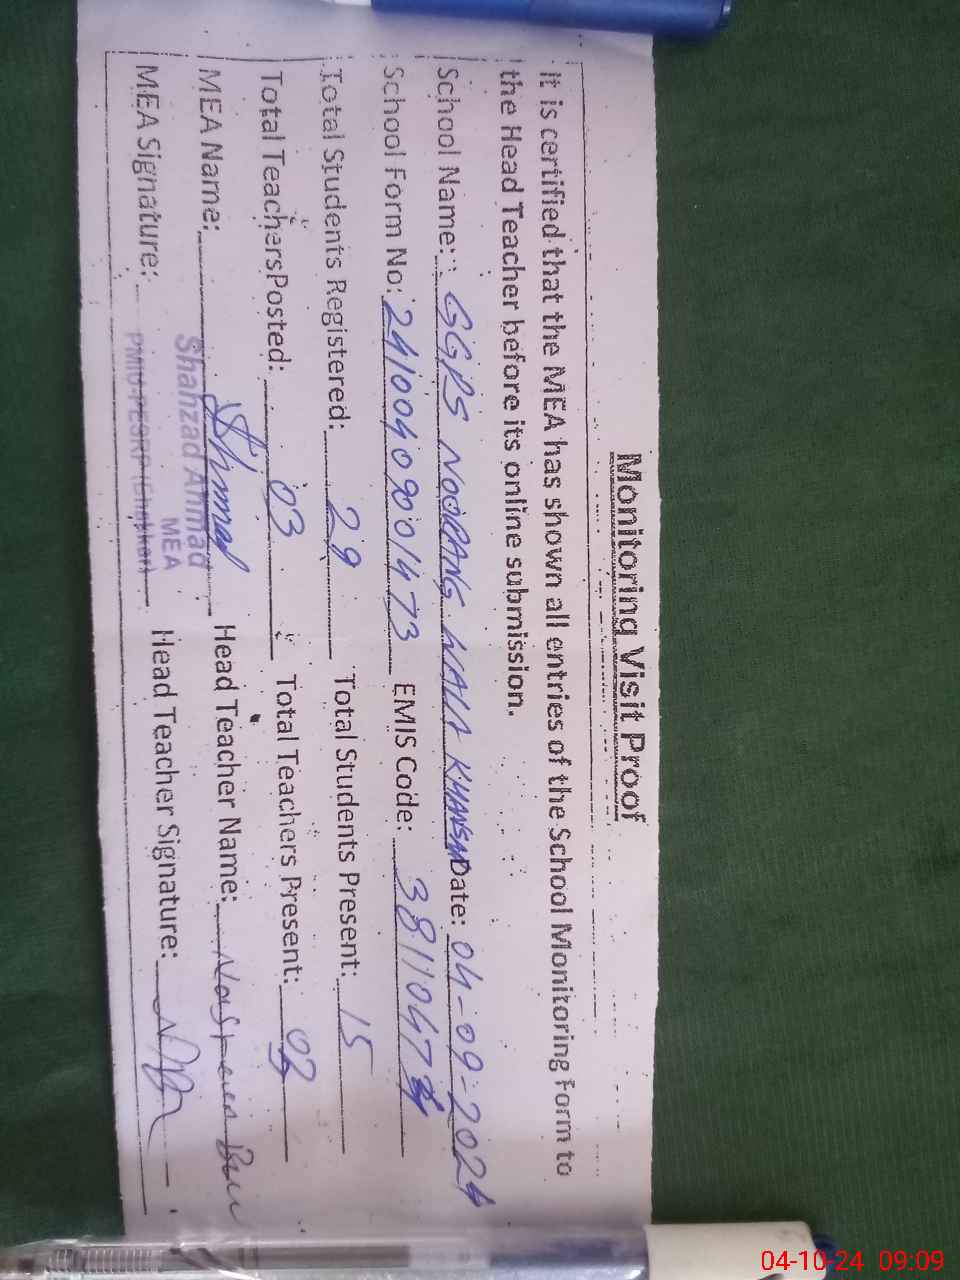 Monitoring Visit Proof
It is certified that the MEA has shown all entries of the School Monitoring Form to
the Head Teacher before its online submission.
School Name: GGPS NOORANG WALA Date: 04-09-2024
School Form No: 24100409001473 EMIS Code: 3811047
Total Students Registered: 29 Total Students Present: 15
Total TeachersPosted: 03 Total Teachers Present:
MEA Name: Head Teacher Name:
Shahzad Ahmad
MEA
MEA Signature: Head Teacher Signature:
04-10-24 09:09